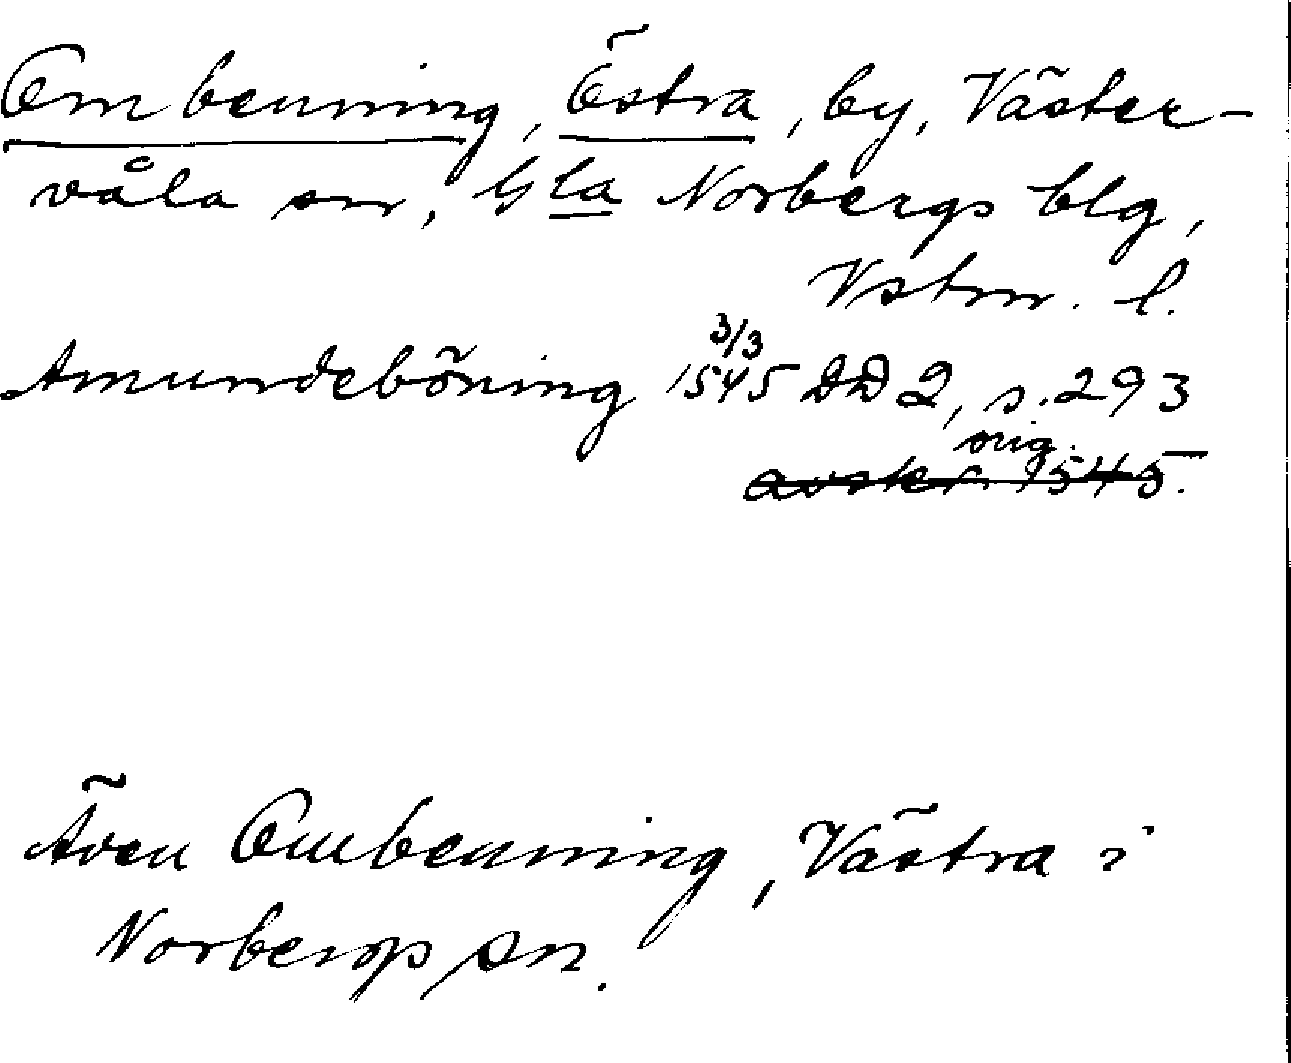 Ombenning, Östra, by, Väster-
våla sn, Gla Norbergs blg,
Vstm. l.
Amundeböning 3/3 1545 DD 2, s. 293
orig.
avskr. 1545.
Även Ombenning, Västra i
Norbergs sn.